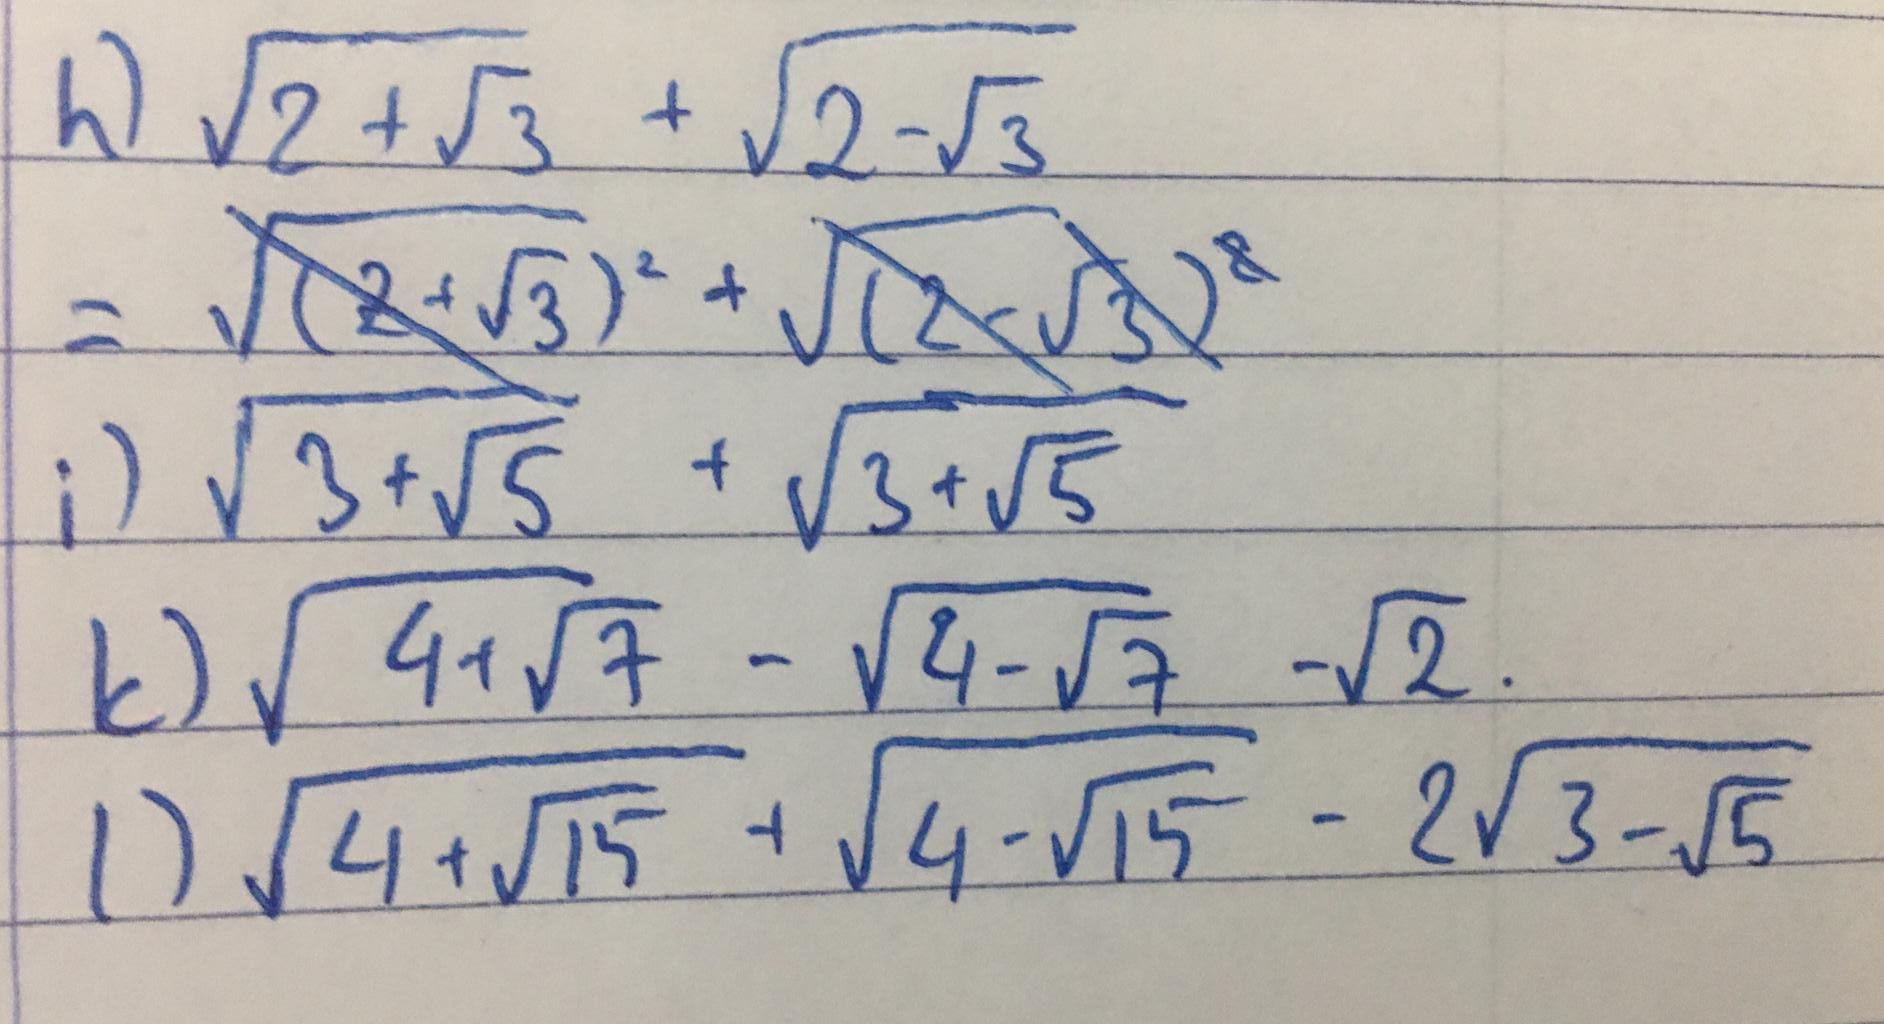 h) √(2+√3) + √(2-√3)
= √((2+√3)²) + √((2-√3)²)
i) √(3+√5) + √(3+√5)
k) √(4+√7) - √(4-√7) -√2.
l) √(4+√15) + √(4-√15) - 2√(3-√5)